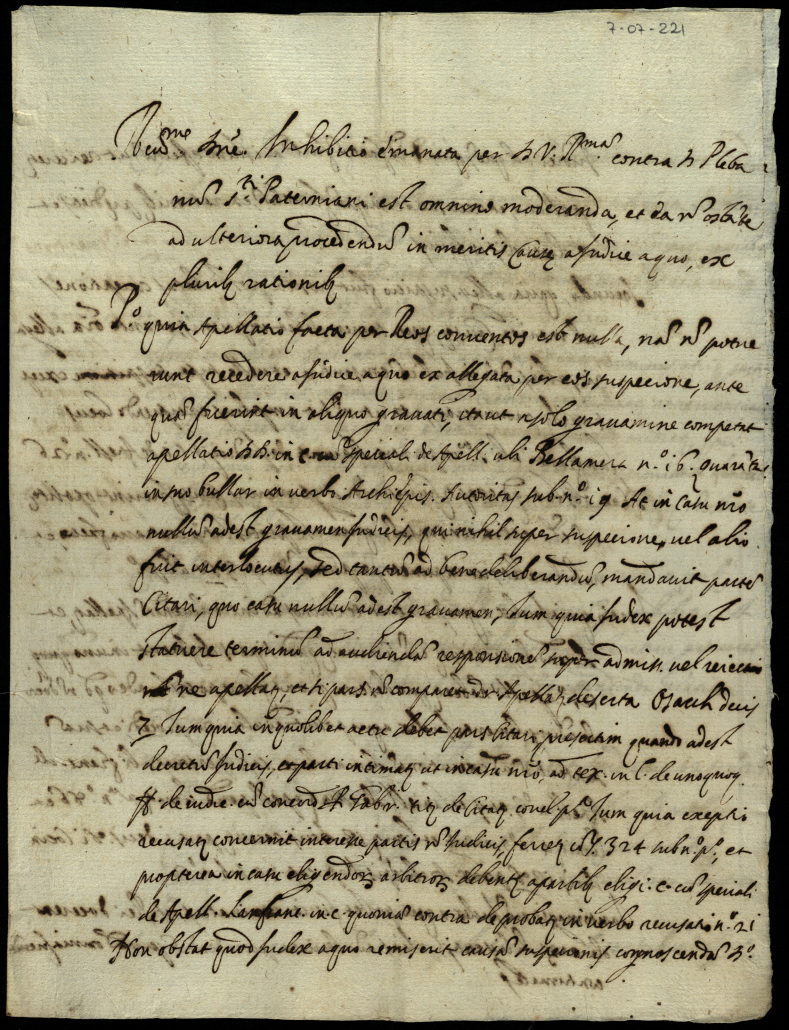 7-07-221
Reu.me Dne. Inhibitio emanata per D. V. R.ma contra D. Pleba
num S.ti Paterniani est omnino moderanda, et ea nō obstāte
ad ulteriora procedendū in meritis causę a Judice a quo, ex
plurib. rationib.
P.o quia Apellatio facta per Reos conventos est nulla, nā nō potue
runt recedere a Judice a quo ex allegata per eos suspecione, ante
quā fuerint in aliquo gravati, ita ut a solo gravamine competat
apellatio in speciali de Apell. ubi Bellamera n.o 16.
in suo bullar in verbo Archiepis. Autoritas sub n.o 19 At in casu nr̄o
nullū adest gravamen Judicis, qui nihil super suspecione, vel alio
fuit interlocutus, sed tantū ad bene deliberandū, mandavit partē
Citari, quo casu nullū adest gravamen, Tum quia Judex potest
statuere terminū ad audiendā responsionē super admiss. vel reiectio
ne apellat. et si pars nō comparet Apellat. deserta decis
7. Tum quia in quolibet actu debet pars Citari, presertim quando adest
decretū Judicis, et parti intimat. ut in casu nr̄o, ad tex. in l. de unoquoq.
ff. de iudic. cū concord. Gabr. de Citat. Tum quia exeptio
recusat. concernit interesse partis nō Judicis, 324 sub n.o p.o, et
propterea in casu eligendor. arbitror. debent a partib. eligi. c. cū speciali
de Apell. Lanfranc. in c. quoniā contra de probat. in verbo recusatio n.o 21
Non obstat quod Judex a quo remiserit causā suspecionis cognoscendā